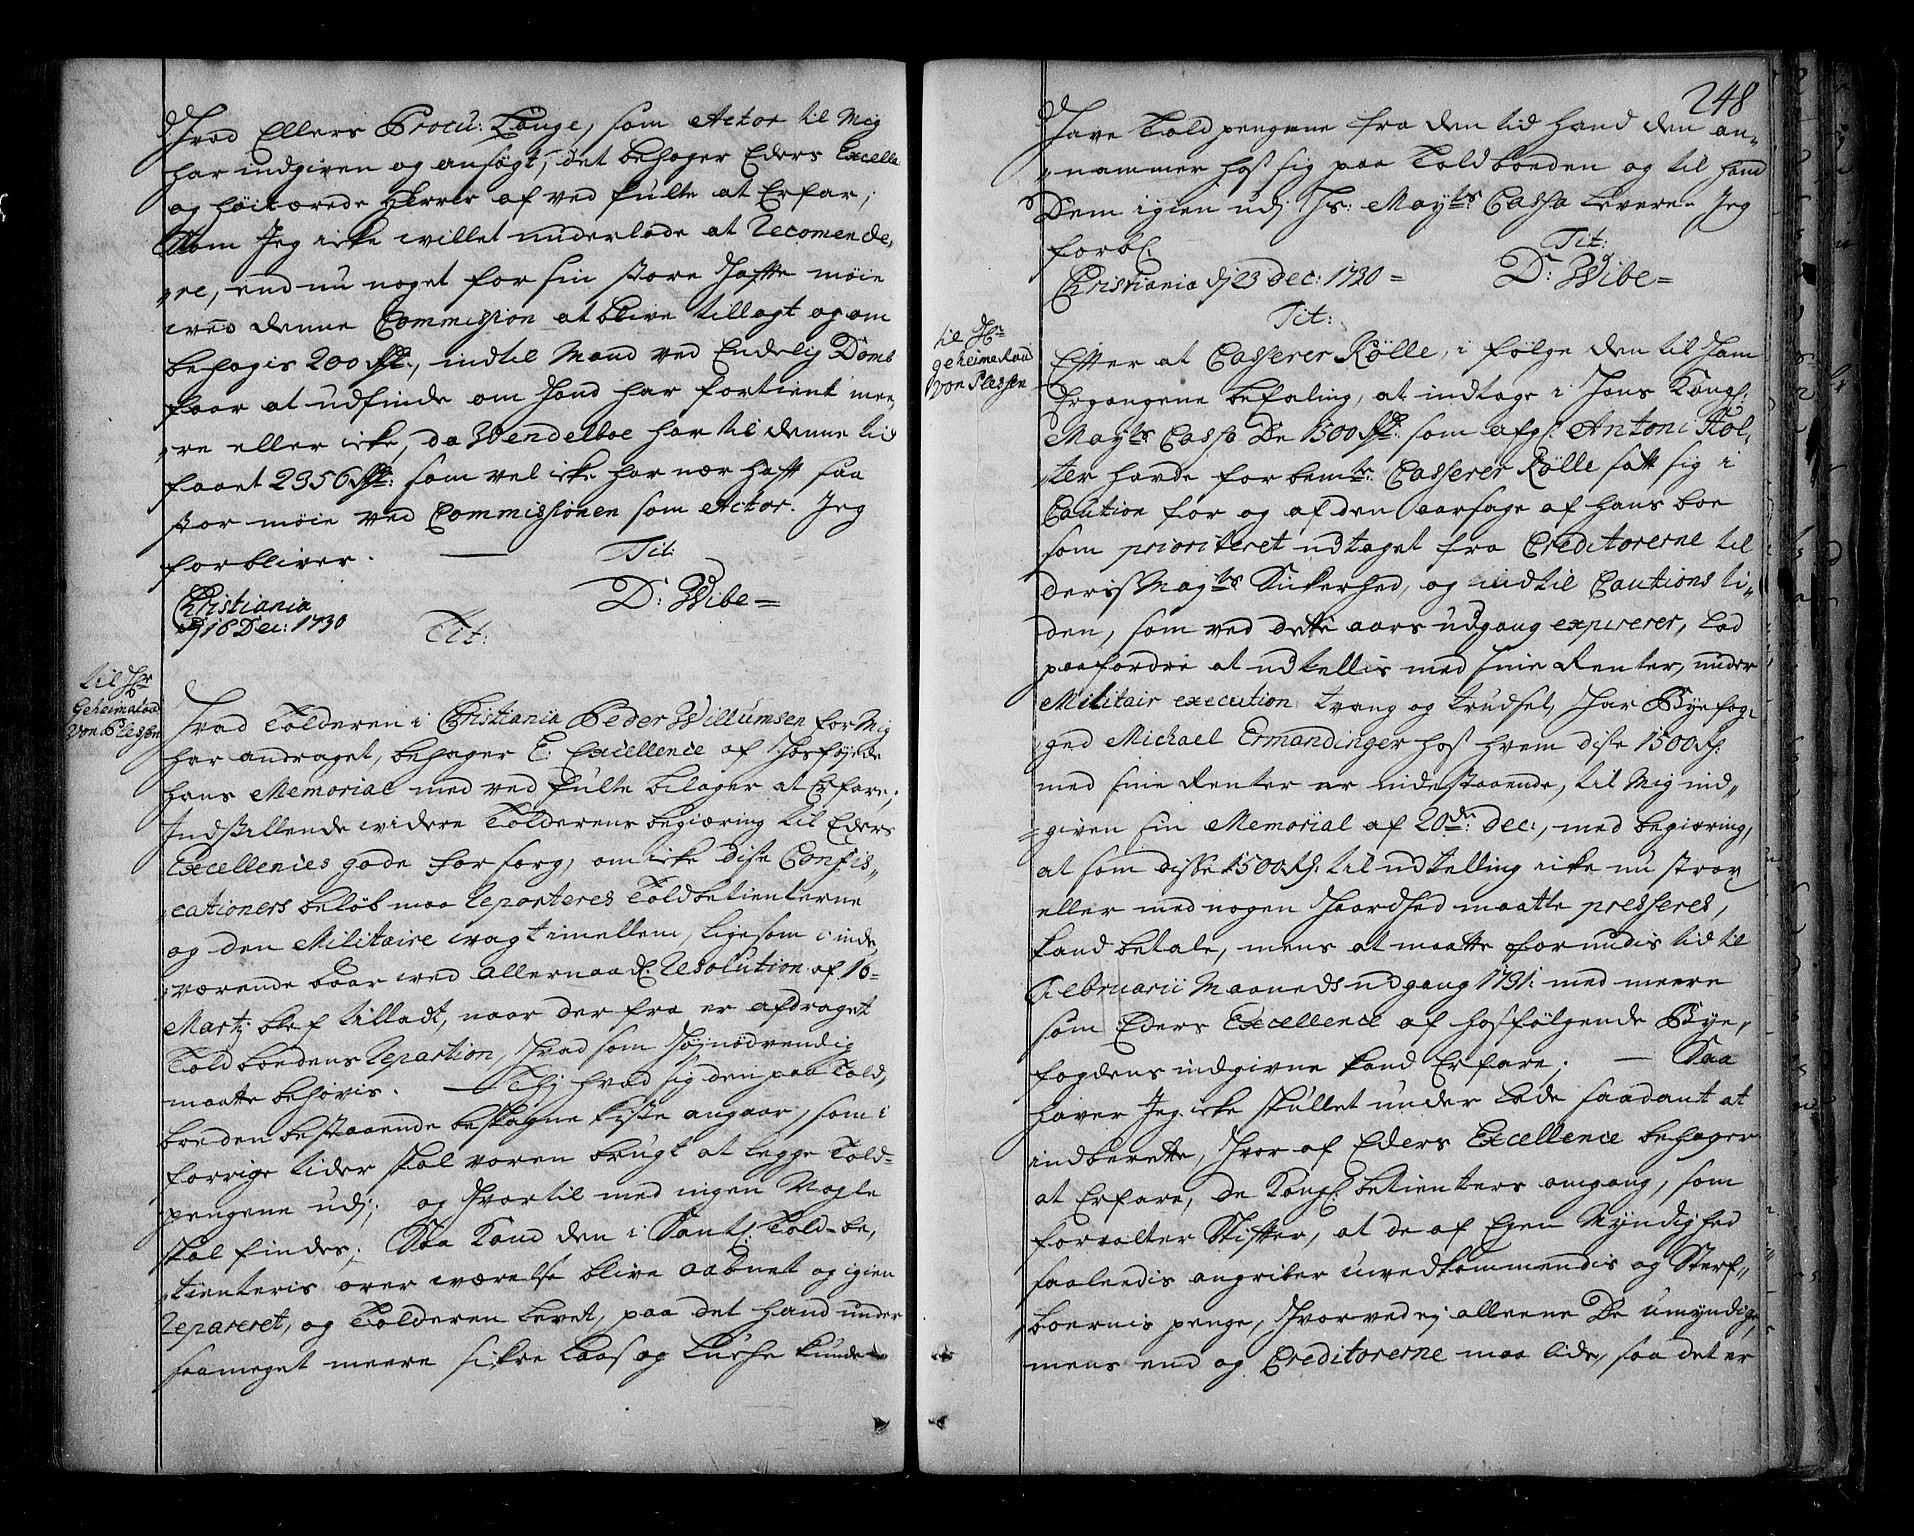 Hvad Ellers Procu: Tønge, som Actor til Mig
har indgiven og ansøgt, det behager Eders Excelle
og høitærede Herrer af ved fulte at Erfar;
Som Jeg icke willet underlade at Recomende,
re, end nu noget for sin store hafte møie
wed denne Commission at blive tillagt og om
behagis 200 Rdr., indtil Mand ved Endelig Domb
faar at udfinde om hand har fortient mee,
re eller icke, da Wendelboe har til denne tid
faaet 2356 Rdr: som vel icke har nær haft saa
stor møie ved Commissionen som Actor. Jeg
forbliver. Tit:
D: Wibe
Christiania
dj 16 Dec: 1730
Tit:
til Hr
Geheimeraad
Von Plessen
Hvad Tolderen i Christiania Peder Willumsen for Mig
har andraget, behager E: Excellence af Hosføyede
hans Memorial med ved fulte bilager at Erfare;
Indstillende widere Tolderens begiæring til Eders
Excellencies gode forsorg, om icke disse Confis,
cationers beløb maa Reparteres Toldbetienterne
og den Militaire wagt imellem, ligesom i inde,
værende Aar wed allernaad: Resolution af 10
Martj blef tilladt, naar der fra er afdraget
Toldboedens Repartion, hvad som højnødvendig
maatte behøvis. Thj hvad sig den paa Told,
boeden bestaaende beslagne kiste angaar, som i
forrige tider skal voren brugt at legge Told-
pengene udj; og hvortil med ingen Nøgle
skal findes; Saa kand den i Samtl: Told-be,
tienteris over værelse blive aabnet og igien
Repareret, og Tolderen levet, paa det hand under
saameget meere sikre Laas og Lucke kunde
248
Have Toldpengene fra den tid hand den an,
nammer hos sig paa Toldboeden og til hand
Dem igien udj Hs: Mayts Cassa Levere. Jeg
forbl: Tit:
Christiania dj 23 Dec: 1730 D: Wibe
Tit:
til Hr
geheimeraad
Von Plessen
Efter at Casserer Rölle, i følge den til ham
Ergangene befaling, at indtage i Hans Kongl:
Mayts Cassa De 1500 Rdr: som afg: Antoni Röl,
ter havde for bemte: Casserer Rölle satt sig i
Caution for og af den aarsage af hans boe
som prioriteret udtaget fra Creditorerne til
deris Mayts Sickerhed, og indtil Cautions ti,
den, som ved dette aars udgang expirerer, Lod
paafordre at udtellis med sine Renter, under
Militair execution tvang og trudsel, Har Byefog,
ged Michael Ermandinger hos hvem disse 1500 Rd:
med sine Renter er indestaaende, til Mig ind,
given sin Memorial af 20de: dec:, med begiæring,
at som disse 1500 Rd: til udtelling icke nu strax
eller med nogen Haardhed maatte presseres,
kand betale, mens at maatte forundis tid til
Februarii Maaneds udgang 1731: med meere
som Eders Excellence af hosfølgende Bye,
fogdens indgivne kand Erfare. Saa
haver Jeg icke skullet under Lade saadant at
indberette, Hvor af Eders Excellence behager
at Erfare, de Kongl: betienters omgang, som
forvalter Skifter, at de af Egen Myndighed
saaledis angriber uvedkommendis og Sterf,
boernis penge, Hvorved ej alleene De umyndige,
mens end og Creditorerne maa lide, saa det er